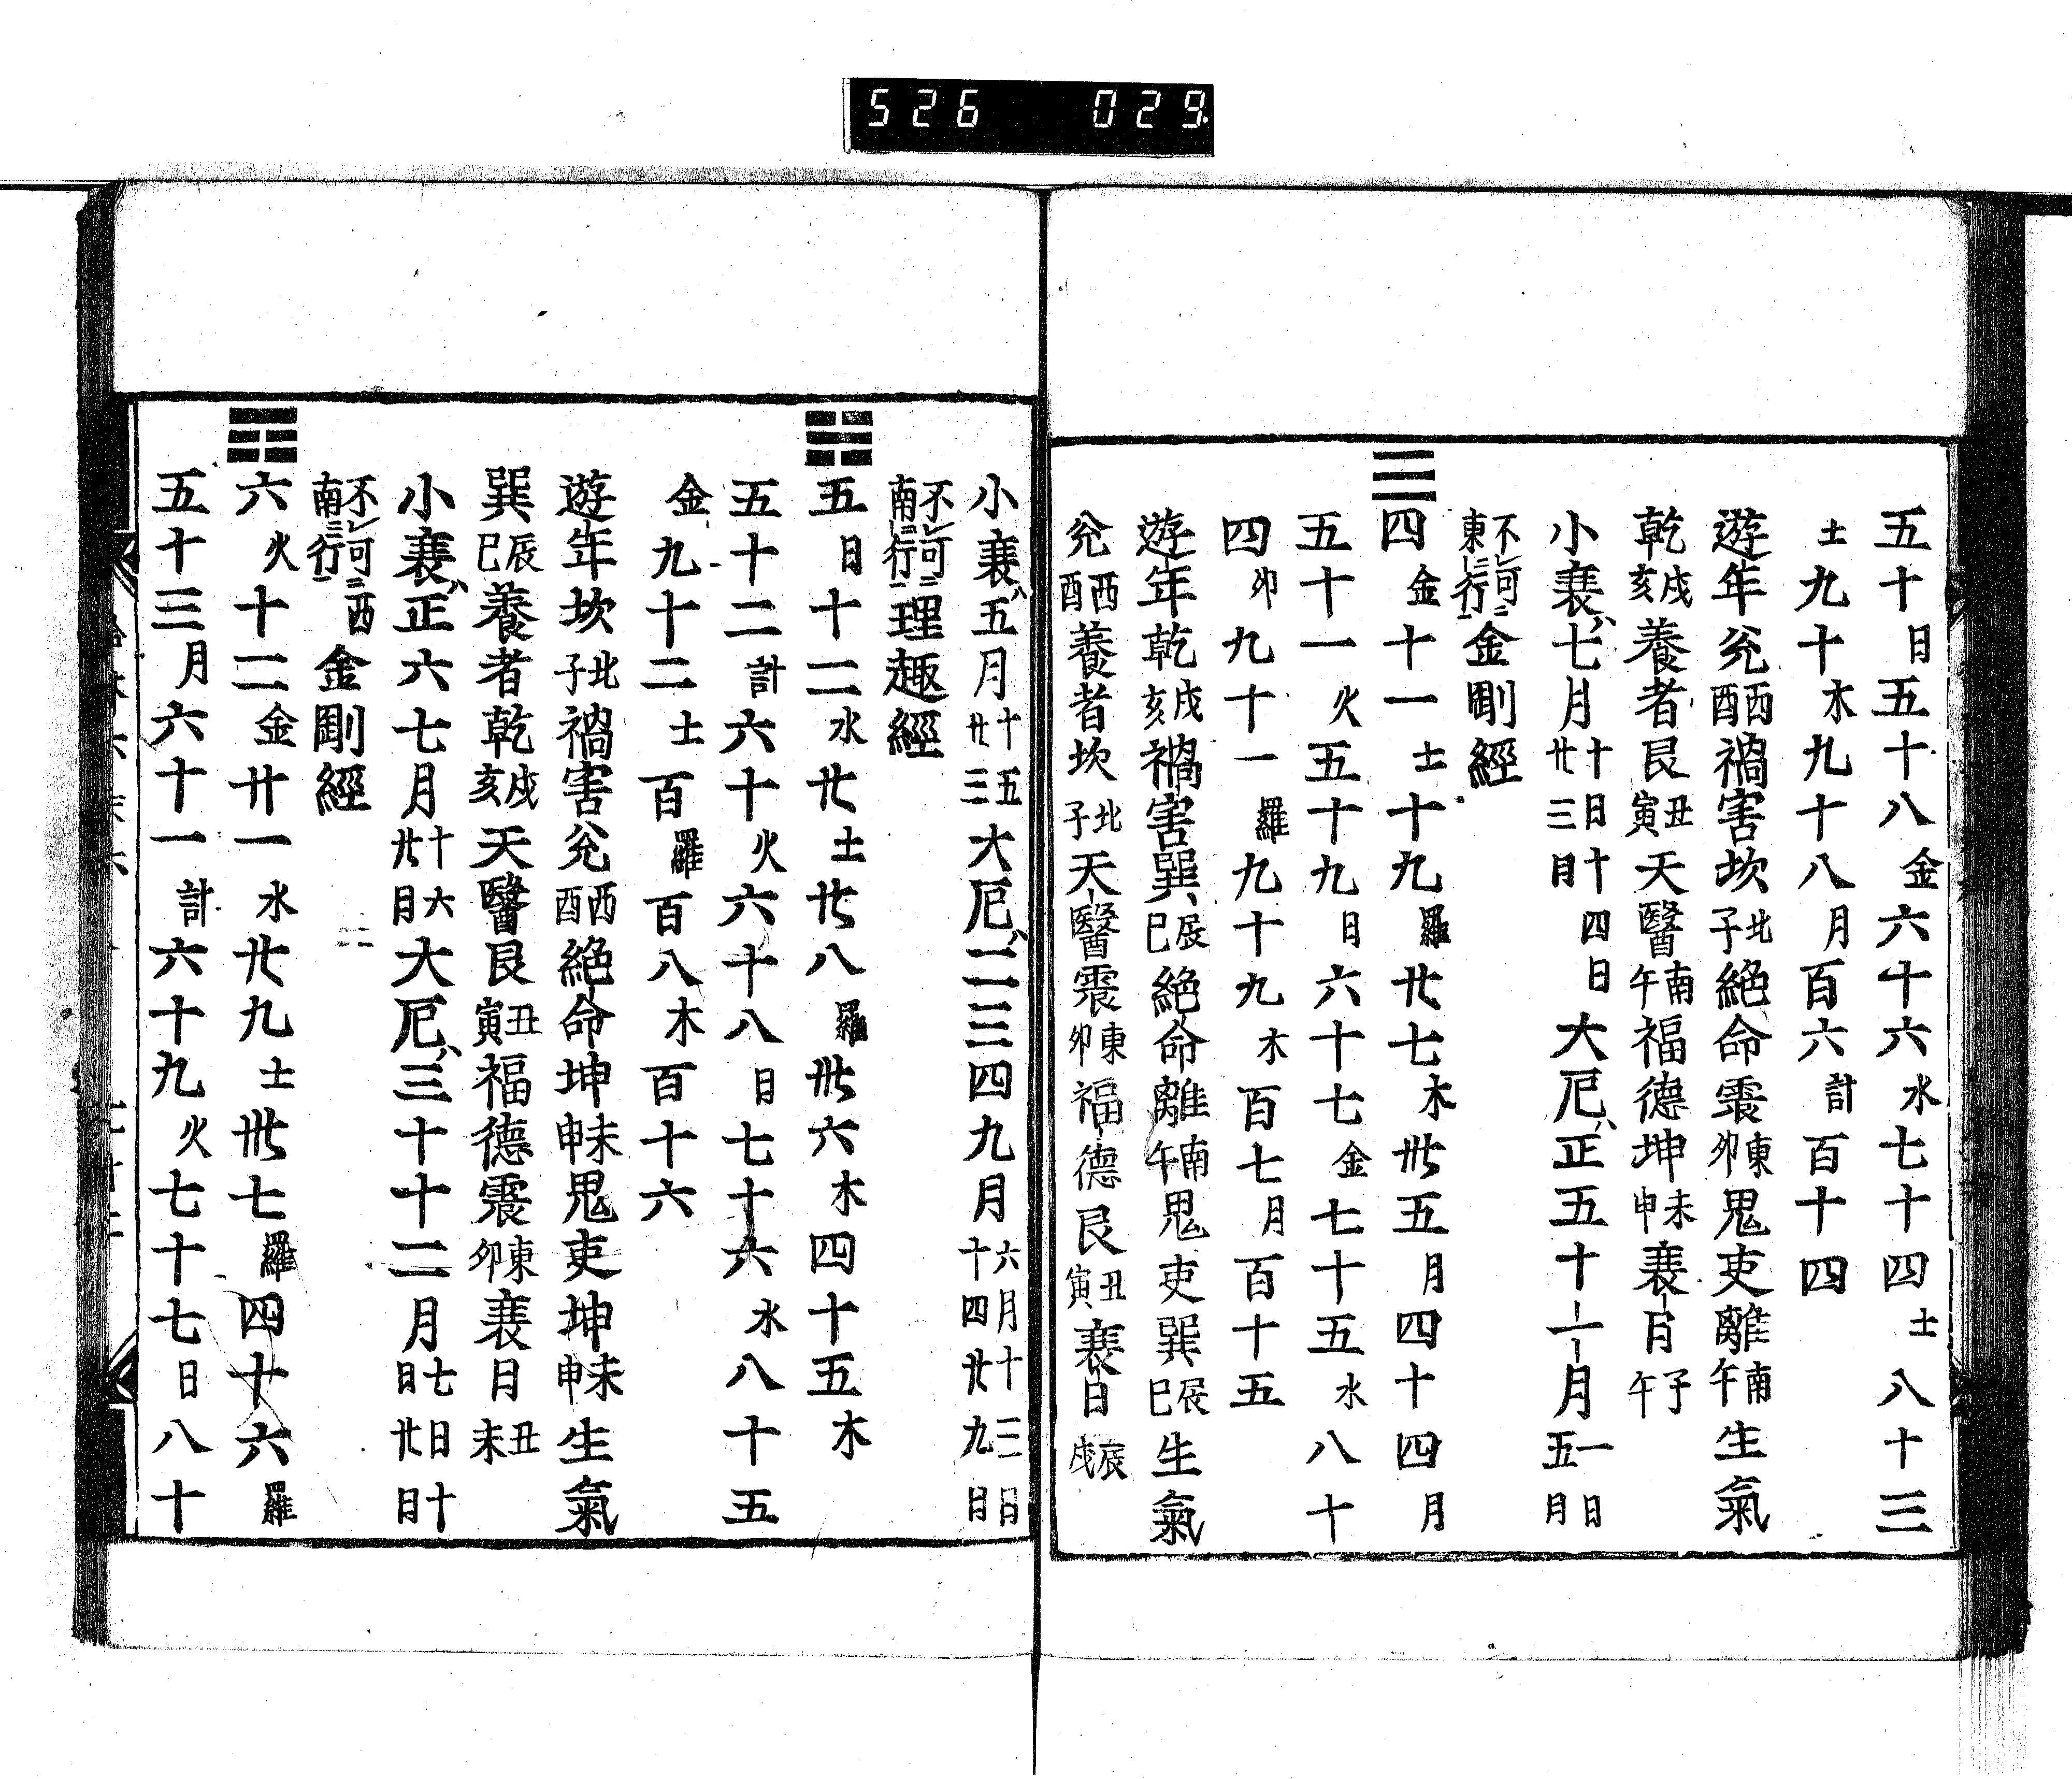 526 029
五十日五十八金六十六水七十四土八十三
土九十木九十八月百六計百十四
遊年兊西酉禍害坎北子絶命震東卯鬼吏離南午生氣
乾戌亥養者艮丑寅天醫南午福德坤未申衰日子午
小衰八七月十日十四日廿三日大厄八正五十十一月一日五月
不可東行金剛經
☰四金十一土十九羅廿七木卅五月四十四月
五十一火五十九日六十七金七十五水八十
四卯九十一羅九十九木百七月百十五
遊年乾戌亥禍害巽辰巳絶命離南午鬼吏巽辰巳生氣
兊西酉養者坎北子天醫震東卯福德艮丑寅衰日辰戌
小衰八五月十五廿三大厄八二三四九月六月十三日十四廿九日
不可南行理趣經
☷五日十二水廿土廿八羅卅六木四十五木
五十二計六十火六十八日七十六水八十五
金九十二土百羅百八木百十六
遊年坎北子禍害兊西酉絶命坤未申鬼吏坤未申生氣
巽辰巳養者乾戌亥天醫艮丑寅福德震東卯衰日丑未
小衰八正六七月十六廿日大厄八三十十二月七日十日廿日
不可西南行金剛經
☶六火十二金廿一水廿九土卅七羅四十六羅
五十三月六十一計六十九火七十七日八十